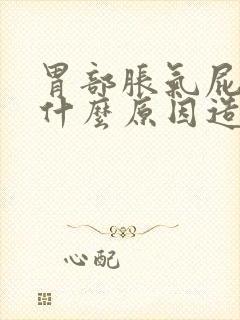 胃部脹氣屁
什麼原因造
心配